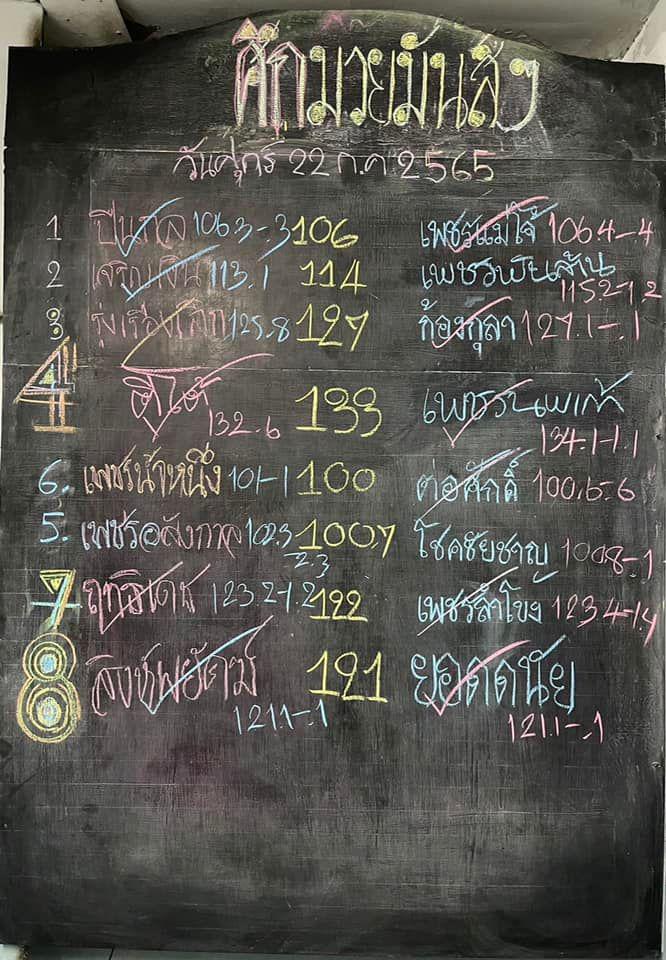 ศึกมวยมันส์ๆ
วันศุกร์ 22 ก.ค 2565
1 ปืนกล 106.3-.3 106 เพชรแม่โจ้ 106.4-.4
2 เจริญเงิน 113.1 114 เพชรพันล้าน 115.2-1.2
3 รุ่งเรืองโลก 125.8 127 ก้องกุลา 127.1-.1
4 132.6 133 134.1-1.1
6. เพชรน้ำหนึ่ง 101-1 100 ต่อศักดิ์ 100.6-.6
5. เพชรอลังกาล 102.3 100.7 โชคชัยชาญ 100.8-.1
-2.3
7 ฤทธิเดช 123.2-1.2 122 เพชรสำโขง 123.4-1.4
8 สิงห์พยัคฆ์ 121.1-.1 121 ยอดดนัย 121.1-.1